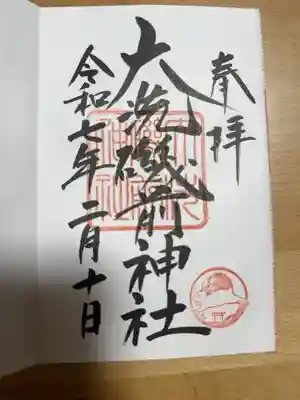 奉拝
大洗磯前神社
令和七年 二月十日